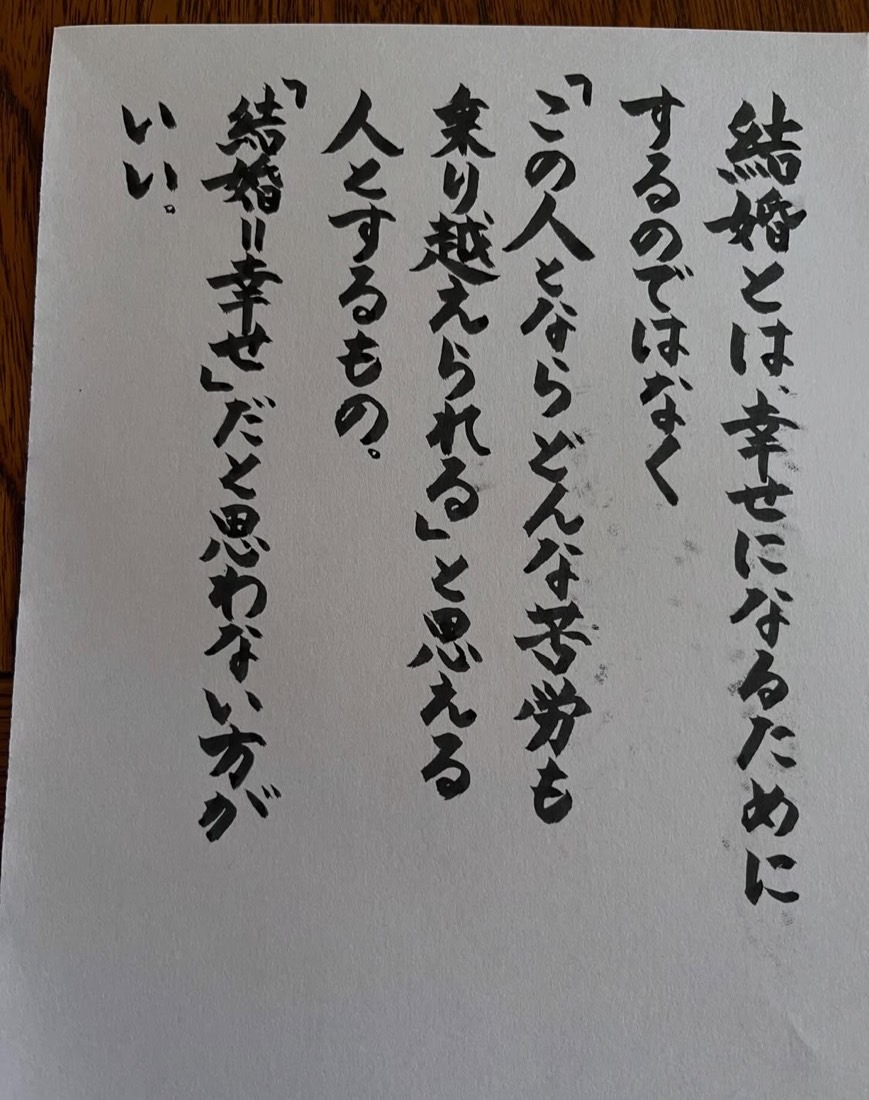 結婚とは、幸せになるために
するのではなく
「この人とならどんな苦労も
乗り越えられる」と思える
人とするもの。
「結婚=幸せ」だと思わない方が
いい。